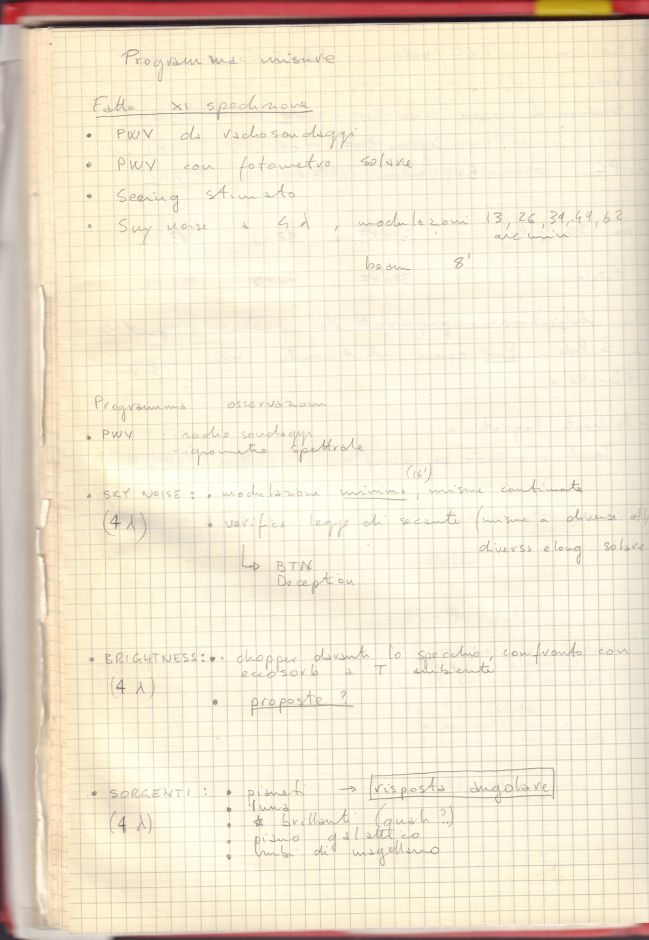 Programma misure
Fatto XI spedizione
• PWV da radiosondaggi
• PWV con fotometro solare
• Seeing stimato
• Sky noise a 4 λ, modulazioni 13, 26, 39, 49, 62
arcmin
beam 8'
Programma osservazioni
• PWV - radio sondaggi
- igrometro spettrale
(16')
• SKY NOISE: • modulazione minima, misure continuate
(4 λ) • verifica legge di secante (misure a diverse alt
diversa elong solare
↳ BTN
Deception
• BRIGHTNESS: • chopper davanti lo specchio, confronto con
(4 λ) eccosorb a T ambiente
• proposte ?
• SORGENTI: • pianeti → risposta angolare
• luna
(4 λ) • * brillanti (quali?)
• piano galattico
• nubi di magellano